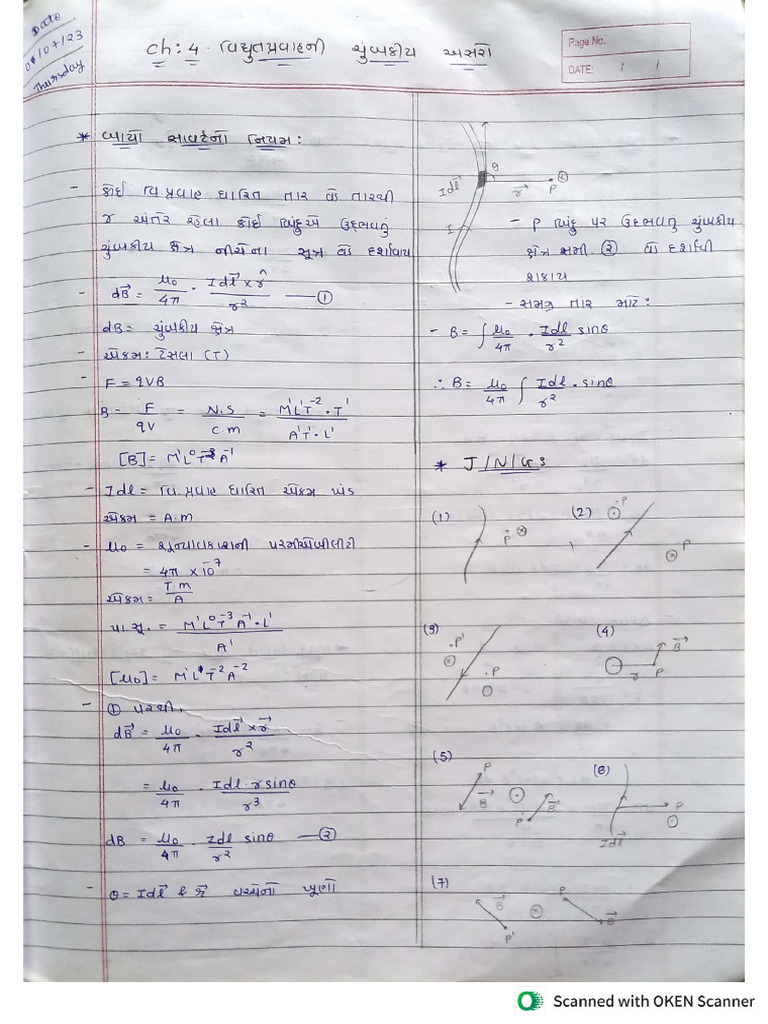 Date
06/07/23
Thursday
Ch: 4. વિદ્યુતપ્રવાહની ચુંબકીય અસરો
Page No.
DATE: / /
* બાયો સાવર્ટનો નિયમ:
- કોઈ વિ.પ્રવાહ ધારિત તાર વડે તારથી
r અંતરે રહેલા કોઈ બિંદુએ ઉદ્દભવતું
ચુંબકીય ક્ષેત્ર નીચેના સૂત્ર વડે દર્શાવાય
- dB⃗ = μ₀/4π · Idl⃗ × r̂/r² —①
dB = ચુંબકીય ક્ષેત્ર
- એકમ: ટેસલા (T)
- F = qVB
B = F/qV = N.S/C.m = M¹L¹T⁻²·T¹/A¹T¹·L¹
[B] = M¹L⁰T⁻²A⁻¹
- Idl = વિ.પ્રવાહ ધારિત એકમ ખંડ
એકમ = A.m
- μ₀ = શૂન્યાવકાશની પરમીએબીલીટી
= 4π × 10⁻⁷
એકમ = T.m/A
પા.સૂ. = M¹L⁰T⁻³A⁻¹·L¹/A¹
[μ₀] = M¹L¹T⁻²A⁻²
- ① પરથી,
dB⃗ = μ₀/4π · Idl⃗ × r⃗/r²
= μ₀/4π · Idl·r sinθ/r³
dB = μ₀/4π · Idl sinθ/r² —②
- θ = Idl⃗ & r⃗ વચ્ચેનો ખૂણો
θ
Idl⃗
r⃗
P
⊗
I
- P બિંદુ પર ઉદ્દભવતું ચુંબકીય
ક્ષેત્ર સમી. ② વડે દર્શાવી
શકાય
- સમગ્ર તાર માટે:
- B = ∫ μ₀/4π · Idl sinθ/r²
∴ B = μ₀/4π ∫ Idl · sinθ/r²
(1) P ⊗
(2) ⊙ P
⊗ P
(3) P' ⊗
P ⊙
(4) B⃗
r P
(5) P B⃗ ⊙ P' B⃗
(6) P ⊙
Idl⃗
(7) B⃗ P' ⊗ P B⃗
Scanned with OKEN Scanner